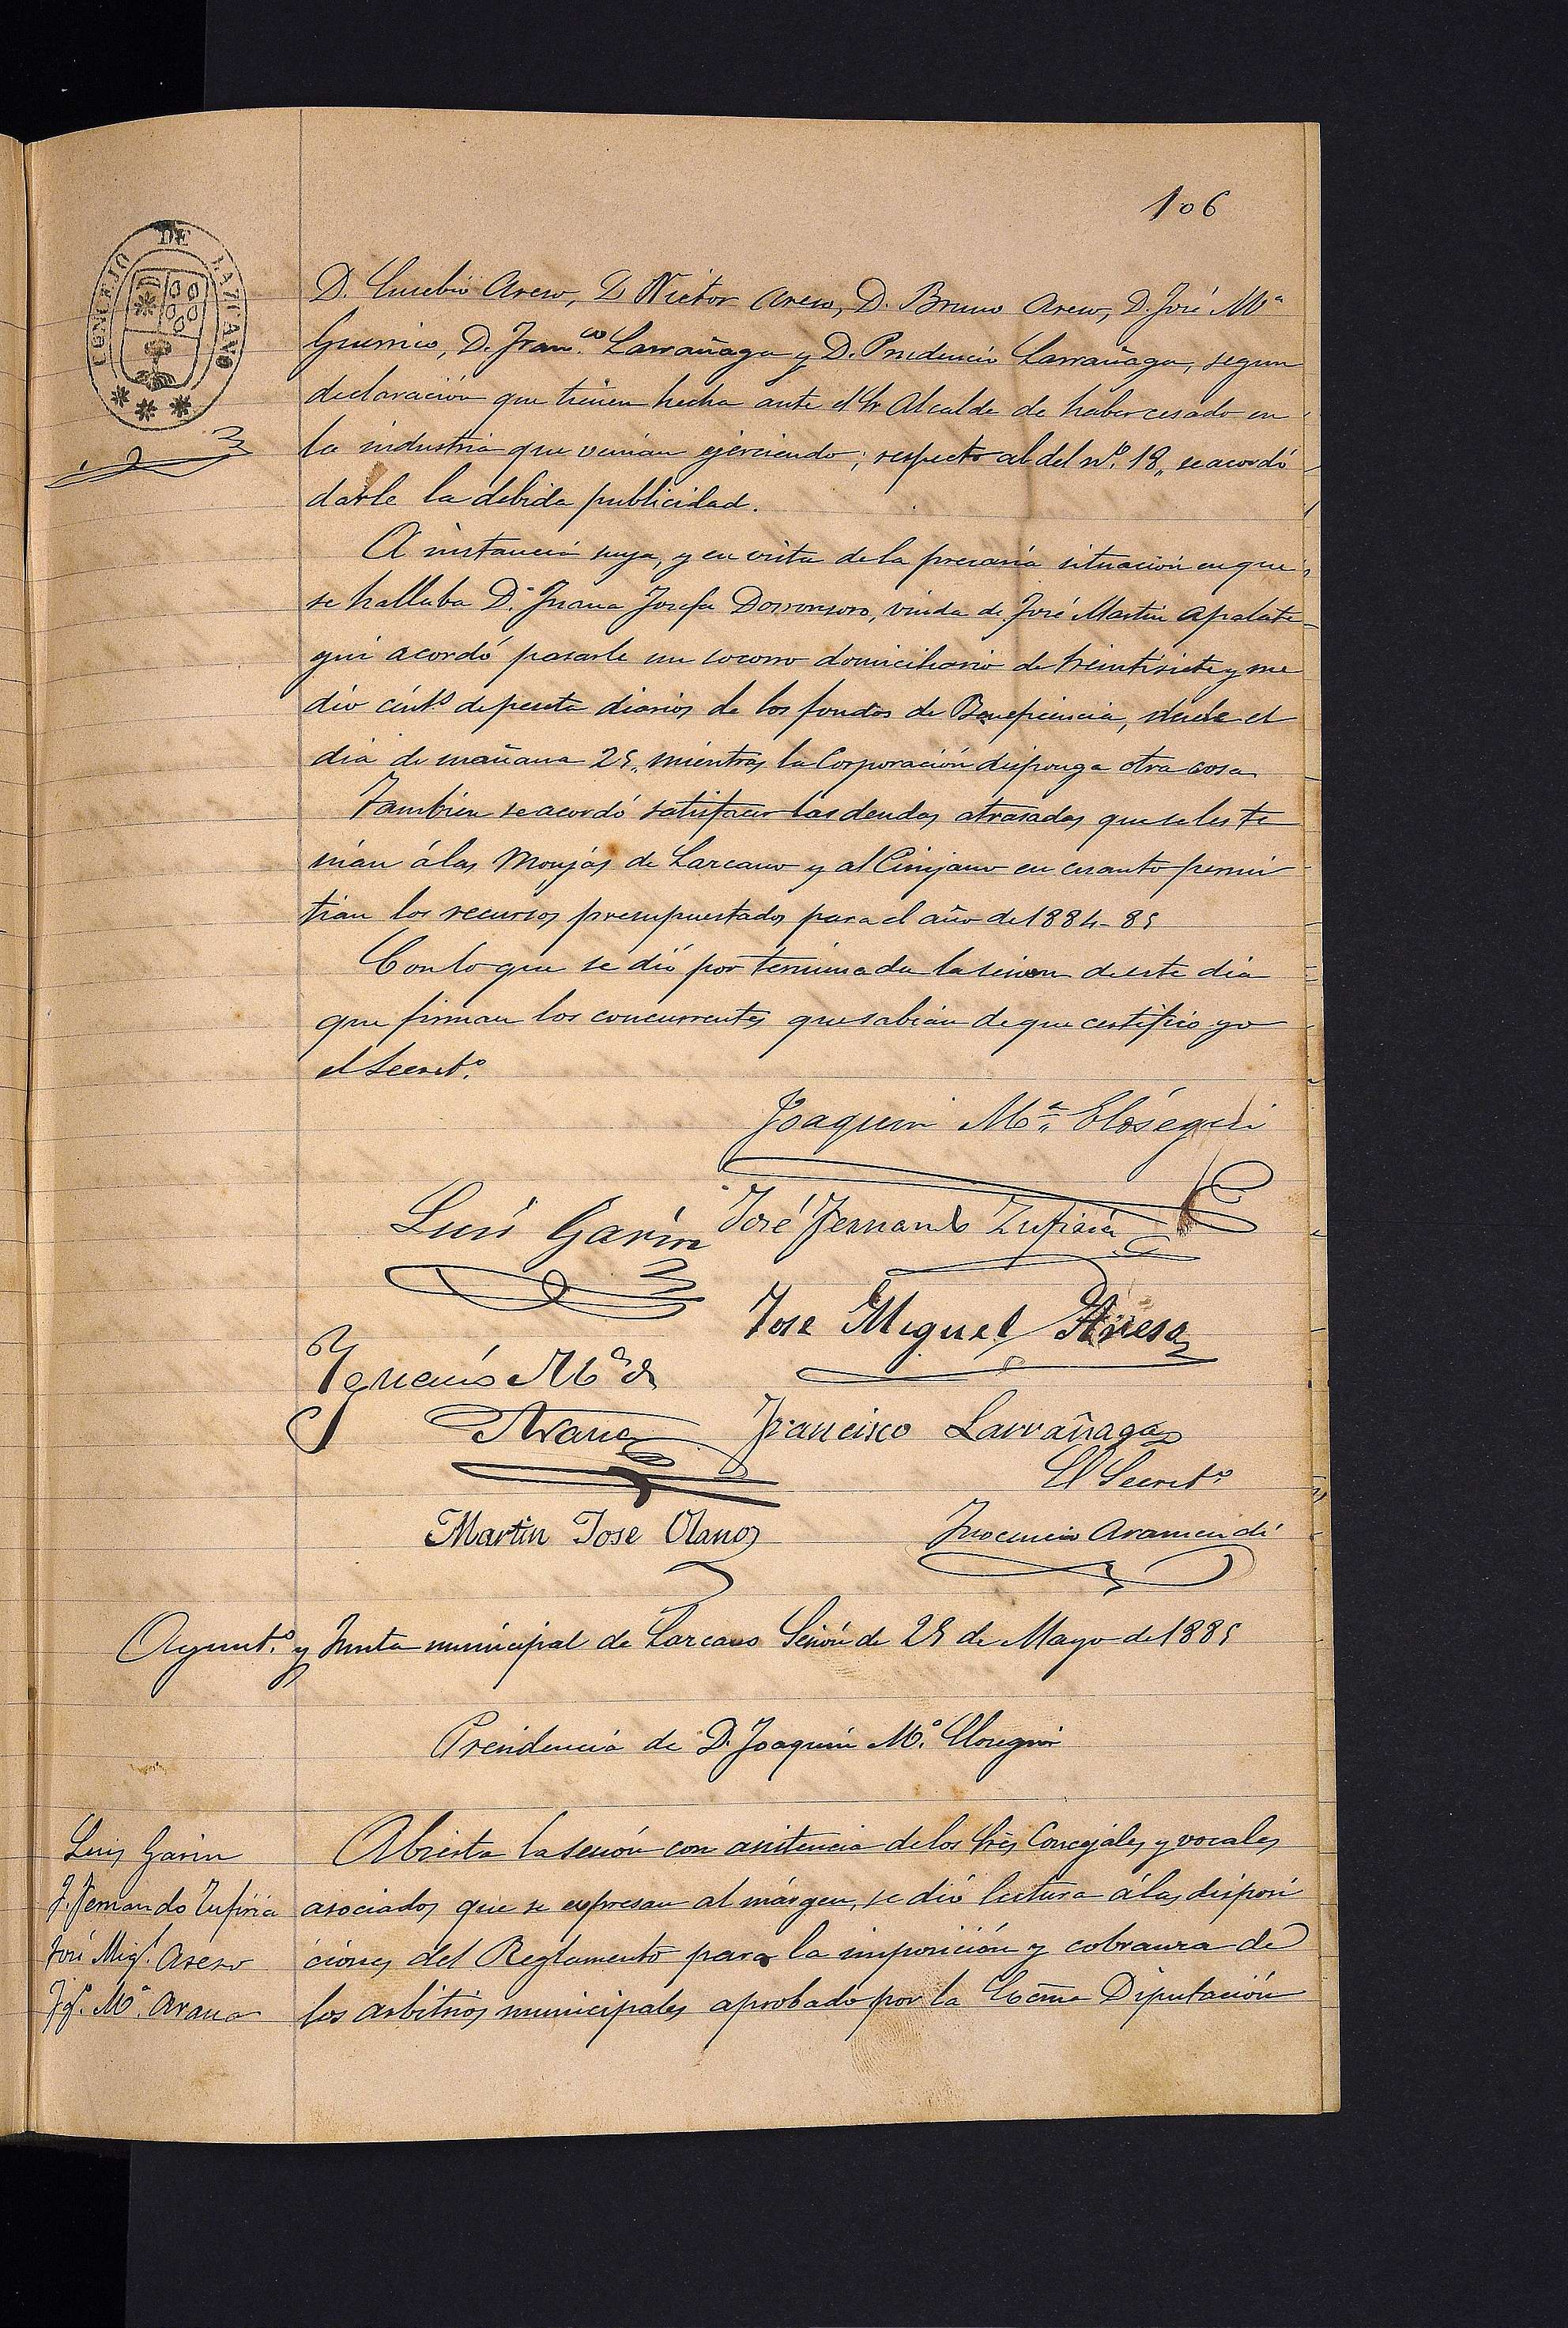 106
CONCEJO DE LAZCANO
D. Eusebio Areso, D Victor Areso, D. Bruno Areso, D. José Mª
Guerrico, D. Fran.co Larrañaga y D. Prudencio Larrañaga, segun
declaración que tienen hecha ante el Sr Alcalde de haber cesado en
la industria que venian ejerciendo; respecto al del nº. 18,, se acordó
darle la debida publicidad.
A instancia suya, y en vista de la precaria situación en que
se hallaba D.ª Juana Josefa Dorronsoro, viuda de José Martin Apalate-
gui acordó pasarle un socorro domiciliario de treintisiete y me
dio cént.s de peseta diarios de los fondos de Beneficencia, desde el
dia de mañana 25,, mientras la Corporación disponga otra cosa
Tambien se acordó satisfacer las deudas atrasadas que se les te
nian á las Monjas de Lazcano y al Cirujano en cuanto permi
tian los recursos presupuestados para el año de 1884-85
Con lo que se dió por terminada la sesion de este dia
que firman los concurrentes que sabian de que certifico yo
el Secret.º
Joaquin Mª Elósegui
Luis Garin
José Fernando Zufiria
Jose Miguel Areso
Ygnacio Mª de
Arana
Francisco Larrañaga
El Secret.º
Martin Jose Olano
Inocencio Aramendi
Ayunt.º y Junta municipal de Lazcano Sesión de 25 de Mayo de 1885
Presidencia de D. Joaquin Mª. Elosegui
Luis Garin
J. Fernando Zufiria
José Mig.l Areso
Ygº. Mª. Arana
Abierta la sesión con asistencia de los Sres Concejales y vocales
asociados que se expresan al márgen, se dió lectura á las disposi
ciones del Reglamento para la imposición y cobranza de
los arbitrios municipales aprobado por la Excma Diputación